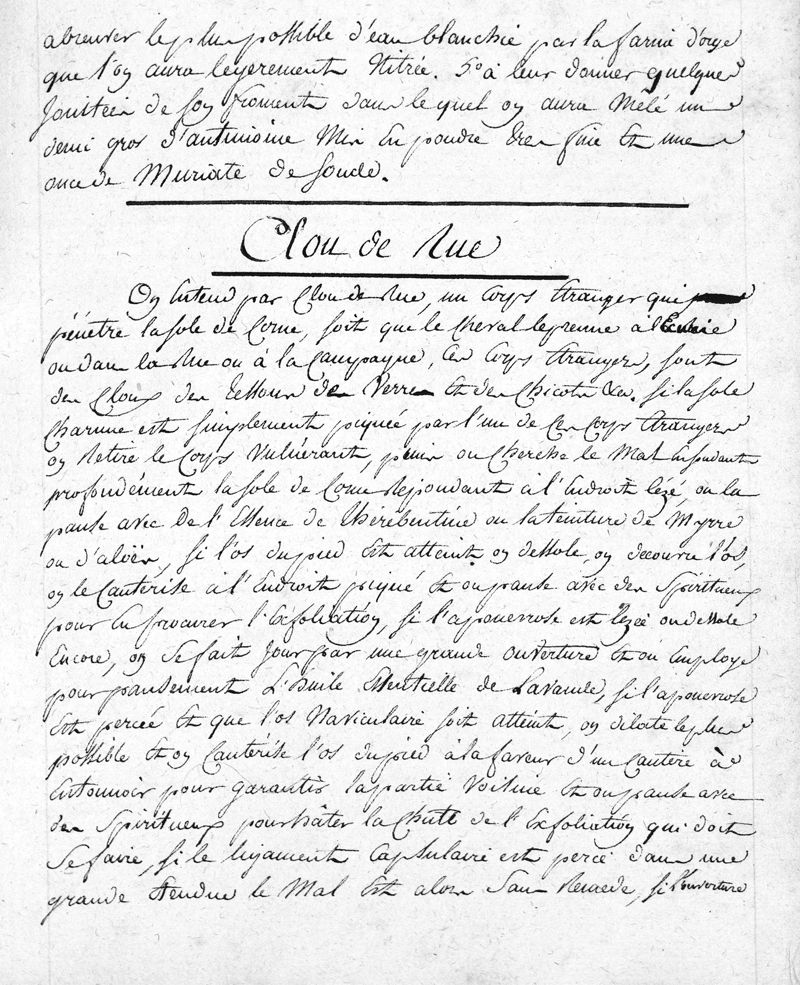 abreuver le plus possible d'eau blanchie par la farine d'orge
que l'on aura legerement Nitrée. 5° à leur donner quelques
Jointées de son froment dans lequel on aura Mêlé un
demi gros d'antimoine en poudre tres fine Et une
once de Muriate de soude.
Clou de Rue
On Entend par Clou de Rue, un Corps Etranger qui
pénétre la sole de Corne, soit que le Cheval le prenne à l'Ecurie
ou dans la Rue ou à la Campagne, Ces Corps Etrangers, sont
des Cloux des Tessons de Verres Et des Chicots &a. si la sole
Charnue est simplement piquée par l'un de Ces Corps Etrangers
on Retire le Corps Vulnérant, puis on Cherche le Mal En fendant
profondément la sole de Corne Repondant à l'Endroit lézé, on la
panse avec De l'Essence de Thérébentine ou la teinture de Myrre
ou d'aloës, si l'os du pied Est atteint on dessole, on decouvre l'os,
on le Cautérise à l'Endroit piqué Et on panse avec des Spiritueux
pour En procurer l'Exfoliation, si l'aponevrose est lézée on dessole
Encore, on se fait Jour par une grande ouverture Et on Employe
pour pansement L'huile Essentielle de Lavande, si l'aponevrose
Est percée Et que l'os Naviculaire soit atteint, on dilate le plus
possible Et on Cautérise l'os du pied à la faveur d'un Cautere à
Entonnoir pour garantir la partie Voisine Et on panse avec
des Spiritueux pour hâter la Chute de l'Exfoliation qui doit
se faire, si le ligament Capsulaire est percé dans une
grande Etendue le Mal Est alors Sans Remede, si l'ouverture